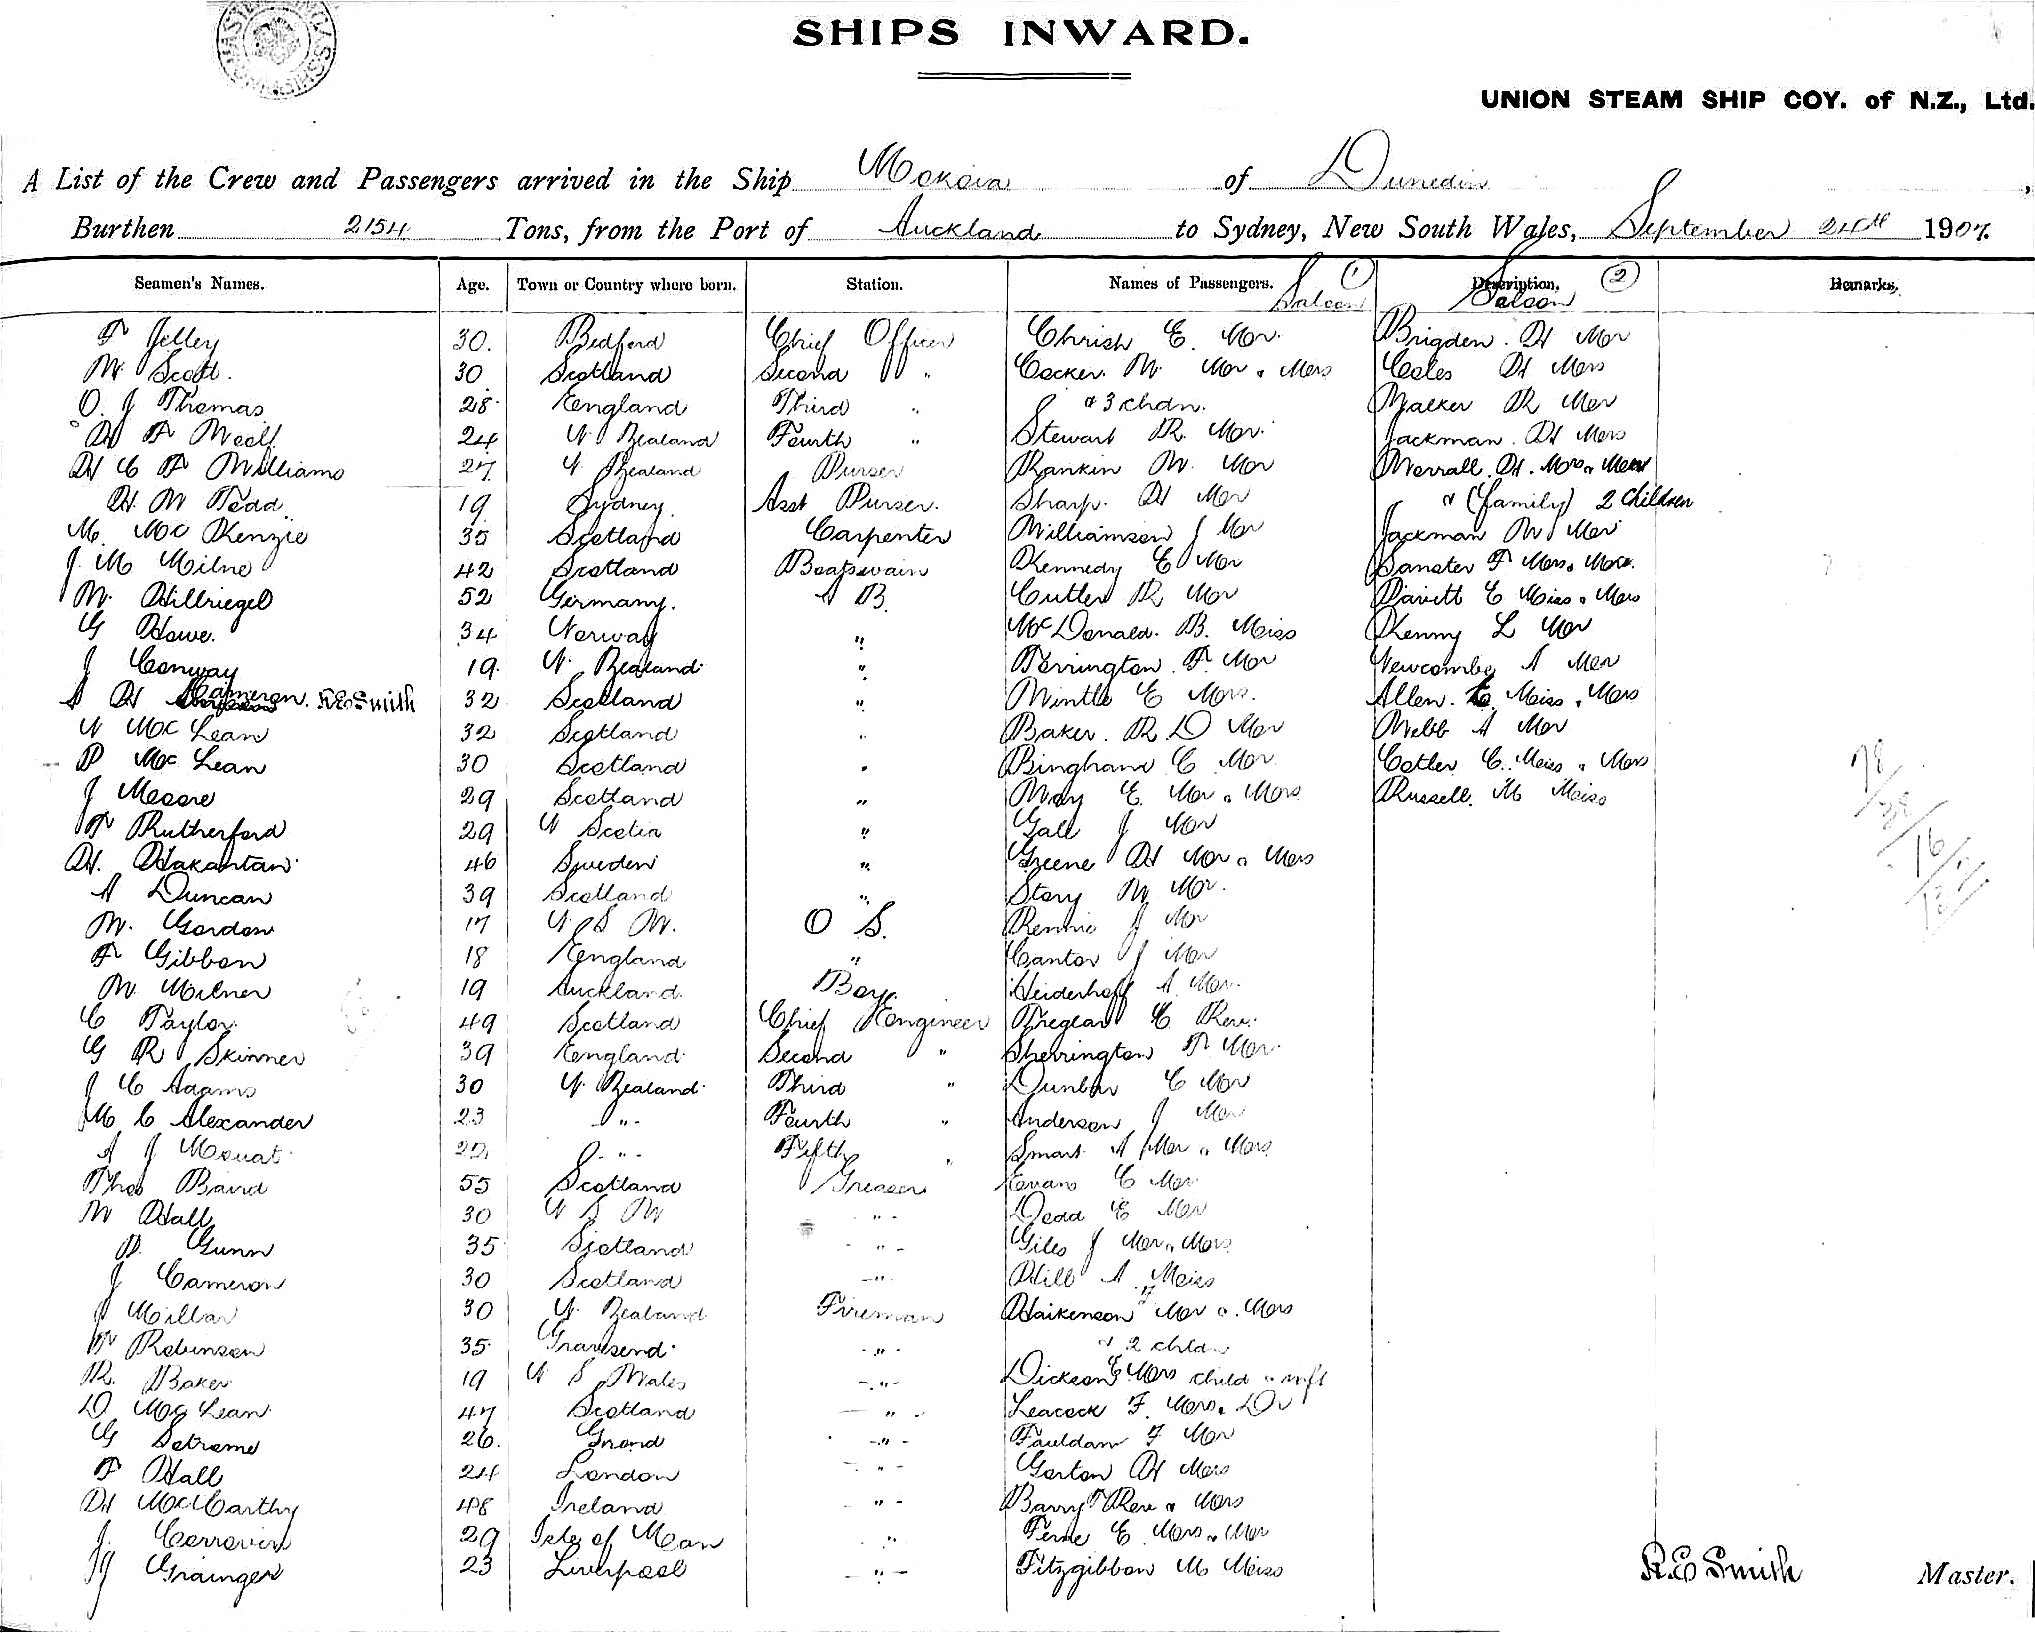 SHIPS INWARD.
UNION STEAM SHIP COY. of N.Z., Ltd.
A List of the Crew and Passengers arrived in the Ship Mokoia of Dunedin,
Burthen 2154 Tons, from the Port of Auckland to Sydney, New South Wales, September 24th 1907.
Seamen's Names. Age. Town or Country where born. Station. Names of Passengers. Saloon (1) Description. Saloon (2) Remarks.
F Jelley 30. Bedford Chief Officer Chrish E. Mr. Brigden. H Mr
W Scott. 30 Scotland Second " Cocker. W. Mr & Mrs Coles H Mrs
O. J Thomas 28 England Third " & 3 chdn. Walker R Mr
H F 24 N Zealand Fourth " Stewart R. Mr. Jackman. H Mrs
H C F Williams 27. N Zealand Purser Rankin W. Mr Worrall. H. Mrs & Mr
H. W Todd 19 Sydney Asst Purser. Sharp. H Mr & (family) 2 Children
M. McKenzie 35 Scotland Carpenter Williamson J Mr Jackman W Mr
J. M Milne 42 Scotland Boatswain Kennedy E Mr Sanster F Mrs & Mr.
W. Hillriegel 52 Germany. A B. Cutler R Mr Davitt E Miss & Mrs
G Howe. 34 Norway " McDonald. B. Miss Kenny L Mr
J Conway 19. N. Zealand " Torrington. F. Mr Newcombe A Mr
A H Cameron. R.E. Smith 32 Scotland " Wintle E Mrs. Allen. Miss & Mrs
N McLean 32 Scotland " Baker. R D Mr Webb A Mr
D McLean 30 Scotland " Bingham C Mr. Cotler C. Miss & Mrs
J Moore 29 Scotland " May E. Mr & Mrs Russell. M Miss
F Rutherford 29 N Scotia " Gall J Mr
H. Hakantan 46 Sweden " Greene H Mr & Mrs
A Duncan 39 Scotland " Story W Mr.
W. Gordon 17 N S W. O S. Rennie J Mr
F Gibbon 18 England " Cantor J Mr
W. Milner 19 Auckland Boy. Heiderhoff A Mr.
C Taylor 49 Scotland Chief Engineer Treglar C Rev.
G R Skinner 39 England Second " Sherrington F Mr.
J C Adams 30 N Zealand Third " Dunbar C Mr
M C Alexander 23 " Fourth " Anderson J Mr
A J Mouat 22 " Fifth " Smart A Mr & Mrs
Thos Baird 55 Scotland Greaser Evans C Mr
W Hall 30 N S W " Dodd E Mr
D. Gunn 35 Scotland " Giles J Mr & Mrs
J Cameron 30 Scotland " Hill A Miss
J Millar 30 N. Zealand Fireman Haikenson Mr & Mrs
F Robinson 35 Gravesend " & 2 chldn
R. Baker 19 N S Wales " Dickson E Mrs child & inft
D McLean 47 Scotland " Leacock F. Mrs & Dr
G 26. " Fauldam F Mr
F Hall 24 London " Gorton H Mrs
H McCarthy 48 Ireland " Barry F Rev & Mrs
J. 29 Isle of Man " Ferne E Mrs & Mr
J Grainger 23 Liverpool " Fitzgibbon M Miss
R.E Smith Master.